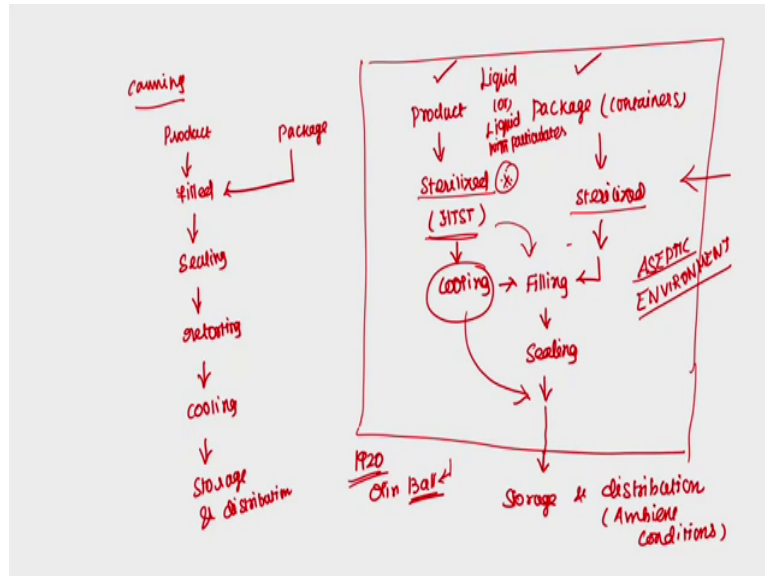 Canning
Product
Package
filled
Sealing
retorting
cooling
Storage
& distribution
Liquid
(or)
Liquid
with particulates
Product
Package (containers)
Sterilized
(HTST)
sterilized
cooling
Filling
Sealing
ASEPTIC
ENVIRONMENT
1920
Olin Ball
Storage & distribution
(Ambient
conditions)